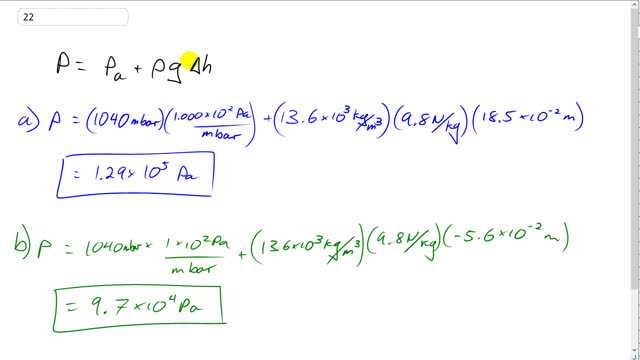 22
P = Pa + ρg Δh
a) P = (1040 mbar)(1.000×10² Pa/mbar) + (13.6×10³ kg/m³)(9.8 N/kg)(18.5×10⁻² m)
= 1.29×10⁵ Pa
b) P = 1040 mbar × 1×10² Pa/mbar + (13.6×10³ kg/m³)(9.8 N/kg)(-5.6×10⁻² m)
= 9.7×10⁴ Pa